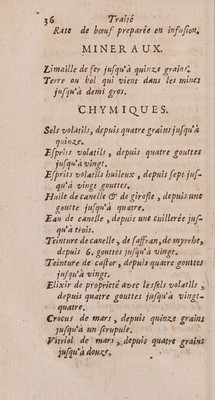 36 Traité
Rate de bœuf preparée en infusion.
MINERAUX.
Limaille de fer jusqu'à quinze grains.
Terre ou bol qui vient dans les mines
jusqu'à demi gros.
CHYMIQUES.
Sels volatils, depuis quatre grains jusqu'à
quinze.
Esprits volatils, depuis quatre gouttes
jusqu'à vingt.
Esprits volatils huileux, depuis sept jus-
qu'à vingt gouttes.
Huile de canelle & de girofle, depuis une
goutte jusqu'à quatre.
Eau de canelle, depuis une cuillerée jus-
qu'à trois.
Teinture de canelle, de saffran, de myrrhe,
depuis 6. gouttes jusqu'à vingt.
Teinture de castor, depuis quatre gouttes
jusqu'à vingt.
Elixir de proprieté avec les sels volatils,
depuis quatre gouttes jusqu'à vingt-
quatre.
Crocus de mars, depuis quinze grains
jusqu'à un scrupule.
Vitriol de mars, depuis quatre grains
jusqu'à douze.